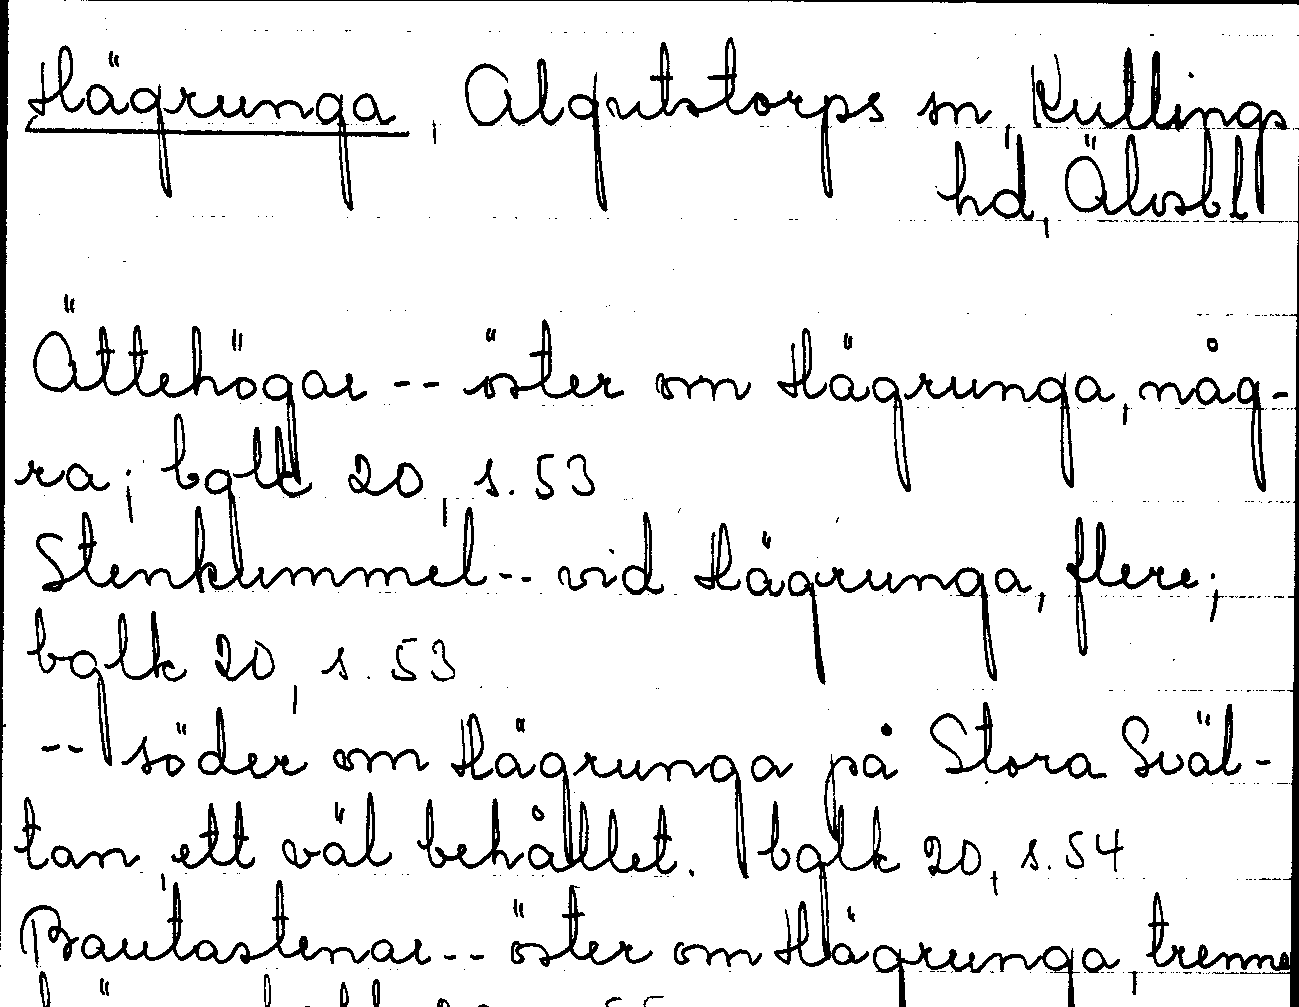 Hägrunga, Algutstorps sn, Kullings
hd, Älvsbl
Ättehögar -- öster om Hägrunga, någ-
ra; bglk 20, s. 53
Stenkummel -- vid Hägrunga, flere;
bglk 20, s. 53
-- söder om Hägrunga på Stora Sväl-
tan, ett väl behållet. bglk 20, s. 54
Bautastenar -- öster om Hägrunga, trenne